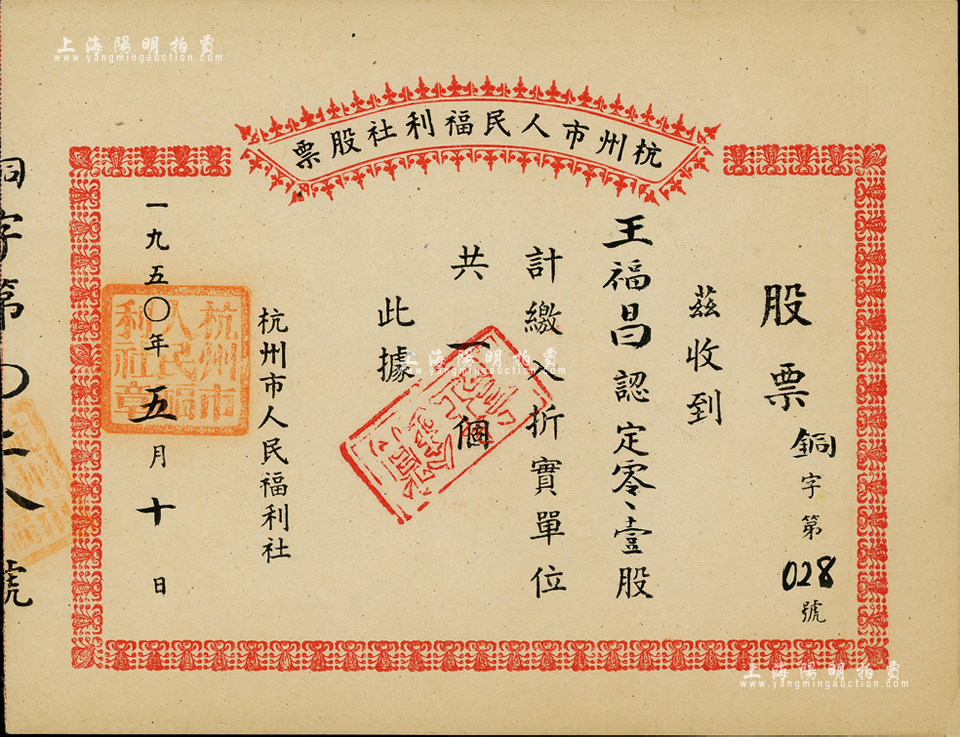 上海陽明拍賣
www.yangmingauction.com
杭州市人民福利社股票
股票
銅字第028號
茲收到
王福昌認定零、壹股
計繳入折實單位
共一個
此據
杭州市人民福利社
一九五〇年五月十日
杭州市人民福利社章
銅字第〇二八號
上海陽明拍賣
www.yangmingauction.com
上海陽明拍賣
www.yangmingauction.com